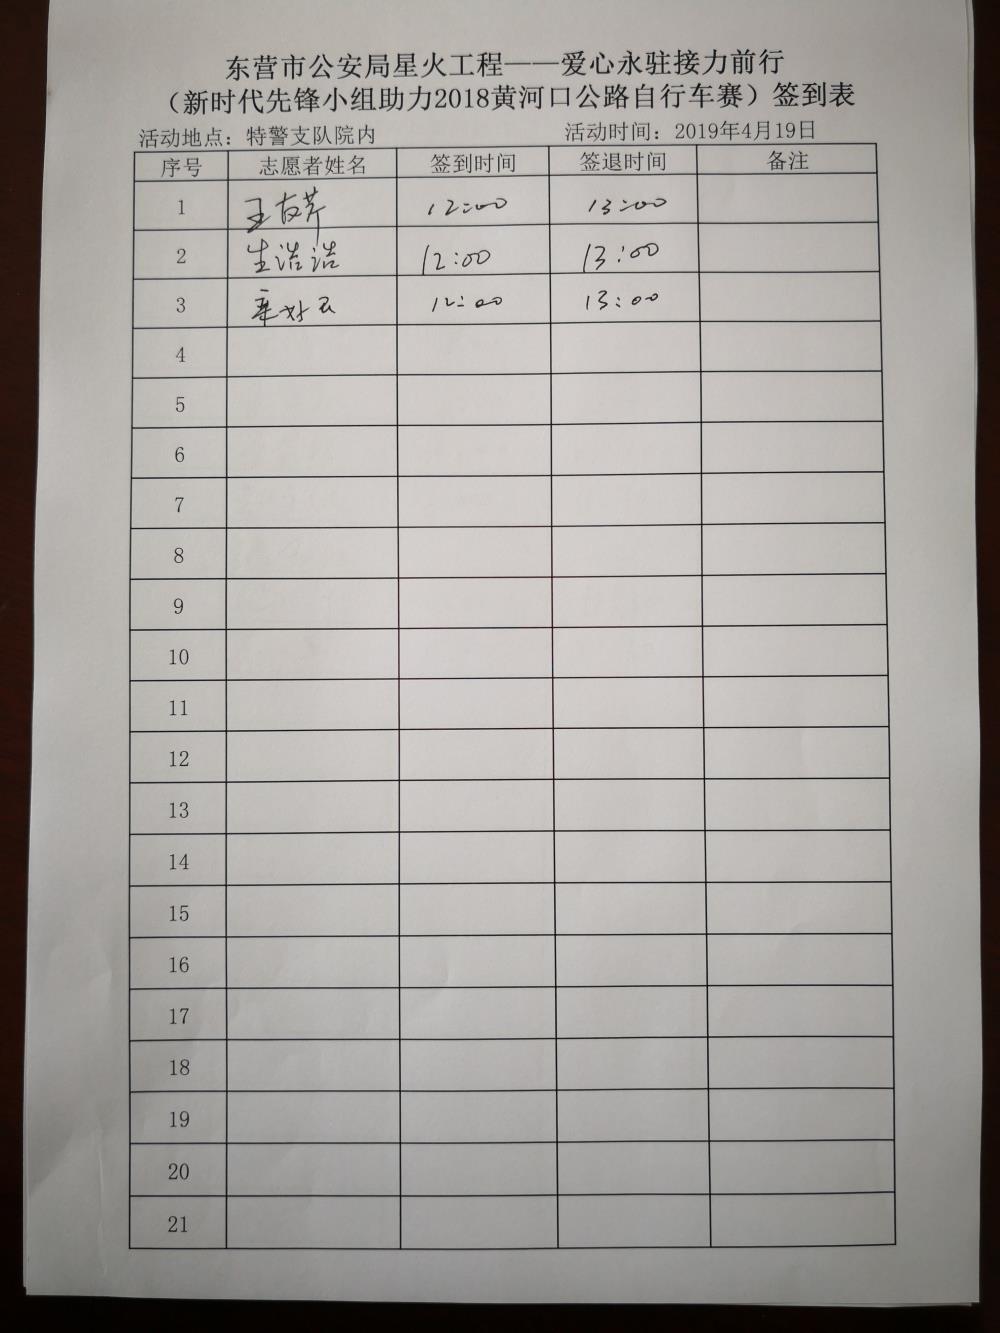 东营市公安局星火工程——爱心永驻接力前行
（新时代先锋小组助力2018黄河口公路自行车赛）签到表
活动地点：特警支队院内 活动时间：2019年4月19日
序号 志愿者姓名 签到时间 签退时间 备注
1 王友芹 12:00 13:00
2 生浩浩 12:00 13:00
3 12:00 13:00
4
5
6
7
8
9
10
11
12
13
14
15
16
17
18
19
20
21